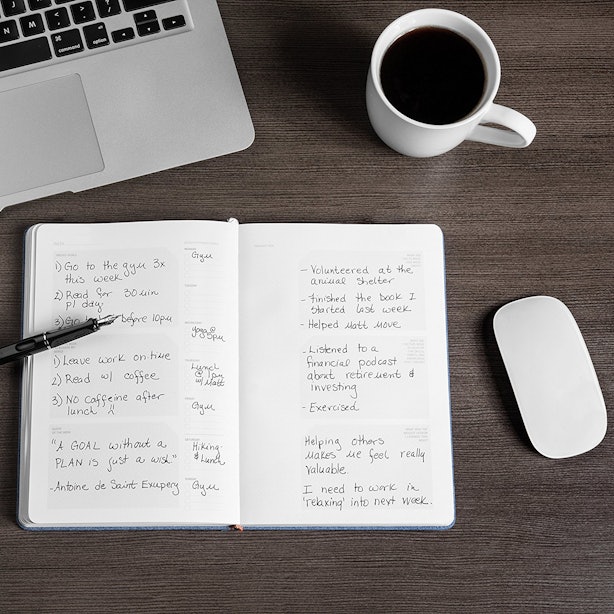 1) Go to the gym 3x
this week
2) Read for 30 min
p/. day.
3) Go before 10pm
1) Leave work on time
2) Read w/ coffee
3) No caffeine after
lunch :(
"A GOAL without a
PLAN is just a wish"
-Antoine de Saint Exupery
Gym
Yoga @
5pm
Lunch
@ 1pm
w/ Matt
Gym
Hiking
& Lunch
Gym
- Volunteered at the
animal shelter
- Finished the book I
started last week
- Helped Matt move
- Listened to a
financial podcast
about retirement &
investing
- Exercised
Helping others
makes me feel really
valuable.
I need to work in
'relaxing' into next week.
command
option